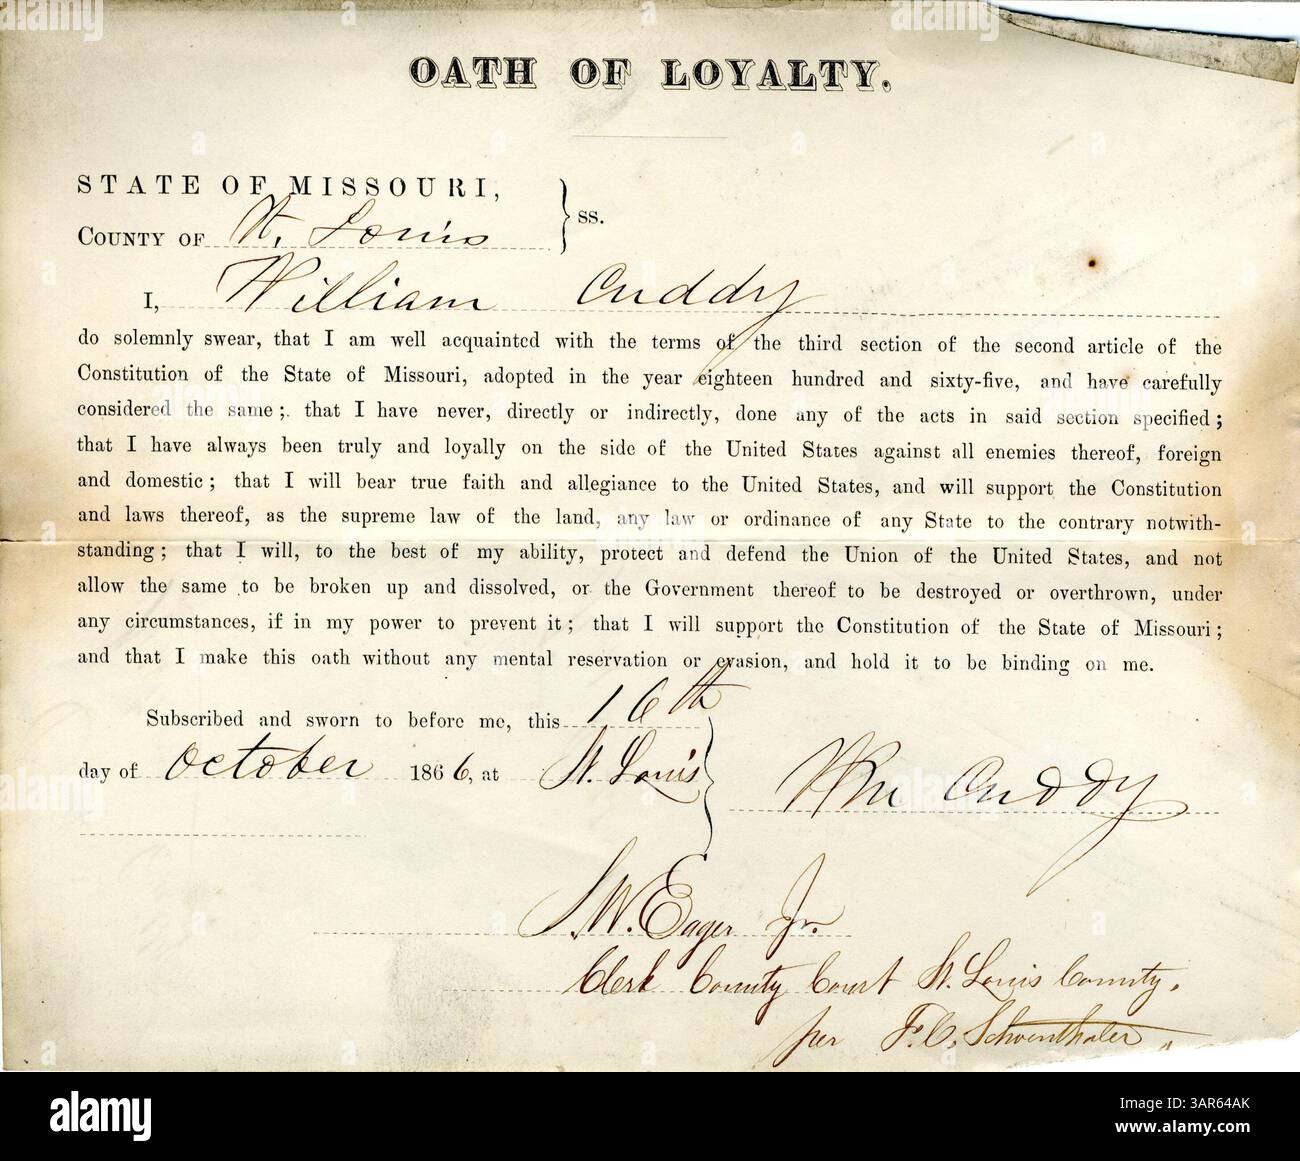 OATH OF LOYALTY.
STATE OF MISSOURI,
COUNTY OF St. Louis
ss.
I, William Cuddy
do solemnly swear, that I am well acquainted with the terms of the third section of the second article of the
Constitution of the State of Missouri, adopted in the year eighteen hundred and sixty-five, and have carefully
considered the same; that I have never, directly or indirectly, done any of the acts in said section specified;
that I have always been truly and loyally on the side of the United States against all enemies thereof, foreign
and domestic; that I will bear true faith and allegiance to the United States, and will support the Constitution
and laws thereof, as the supreme law of the land, any law or ordinance of any State to the contrary notwith-
standing; that I will, to the best of my ability, protect and defend the Union of the United States, and not
allow the same to be broken up and dissolved, or the Government thereof to be destroyed or overthrown, under
any circumstances, if in my power to prevent it; that I will support the Constitution of the State of Missouri;
and that I make this oath without any mental reservation or evasion, and hold it to be binding on me.
Subscribed and sworn to before me, this 16th
day of October 1866, at St. Louis
Wm Cuddy
S. W. Eager Jr.
Clerk County Court St. Louis County.
per F. C. Schoenthaler
alamy
Image ID: 3AR64AK
www.alamy.com